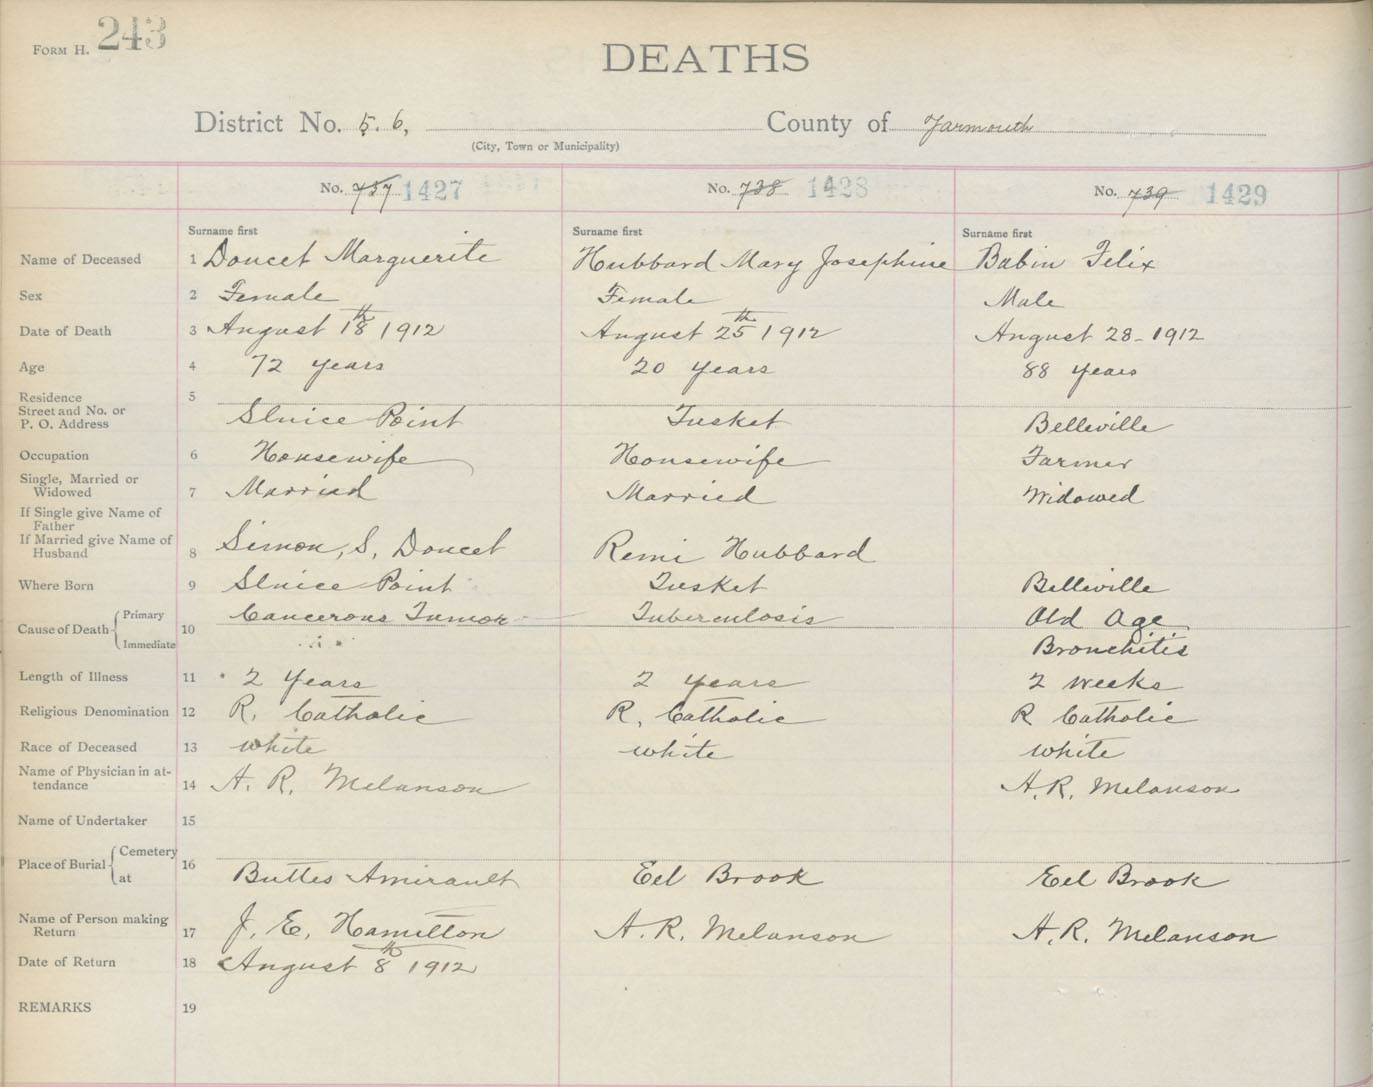 FORM H. 243
DEATHS
District No. 5. 6, County of Yarmouth
(City, Town or Municipality)
No. 737 1427 No. 738 1428 No. 739 1429
Surname first Surname first Surname first
Name of Deceased 1 Doucet Marguerite Hubbard Mary Josephine Babin Felix
Sex 2 Female Female Male
Date of Death 3 August 18th 1912 August 25th 1912 August 28-1912
Age 4 72 years 20 years 88 years
Residence 5
Street and No. or
P. O. Address Sluice Point Tusket Belleville
Occupation 6 Housewife Housewife Farmer
Single, Married or
Widowed 7 Married Married Widowed
If Single give Name of
Father
If Married give Name of
Husband 8 Simon, S, Doucet Remi Hubbard
Where Born 9 Sluice Point Tusket Belleville
Cause of Death Primary 10 Cancerous Tumor Tuberculosis Old Age
Immediate Bronchitis
Length of Illness 11 2 years 2 years 2 weeks
Religious Denomination 12 R. Catholic R, Catholic R Catholic
Race of Deceased 13 white white white
Name of Physician in at-
tendance 14 A. R. Melanson A. R. Melanson
Name of Undertaker 15
Place of Burial Cemetery 16
at Buttes Amirault Eel Brook Eel Brook
Name of Person making
Return 17 J. E. Hamilton A. R. Melanson A. R. Melanson
Date of Return 18 August 8th 1912
REMARKS 19